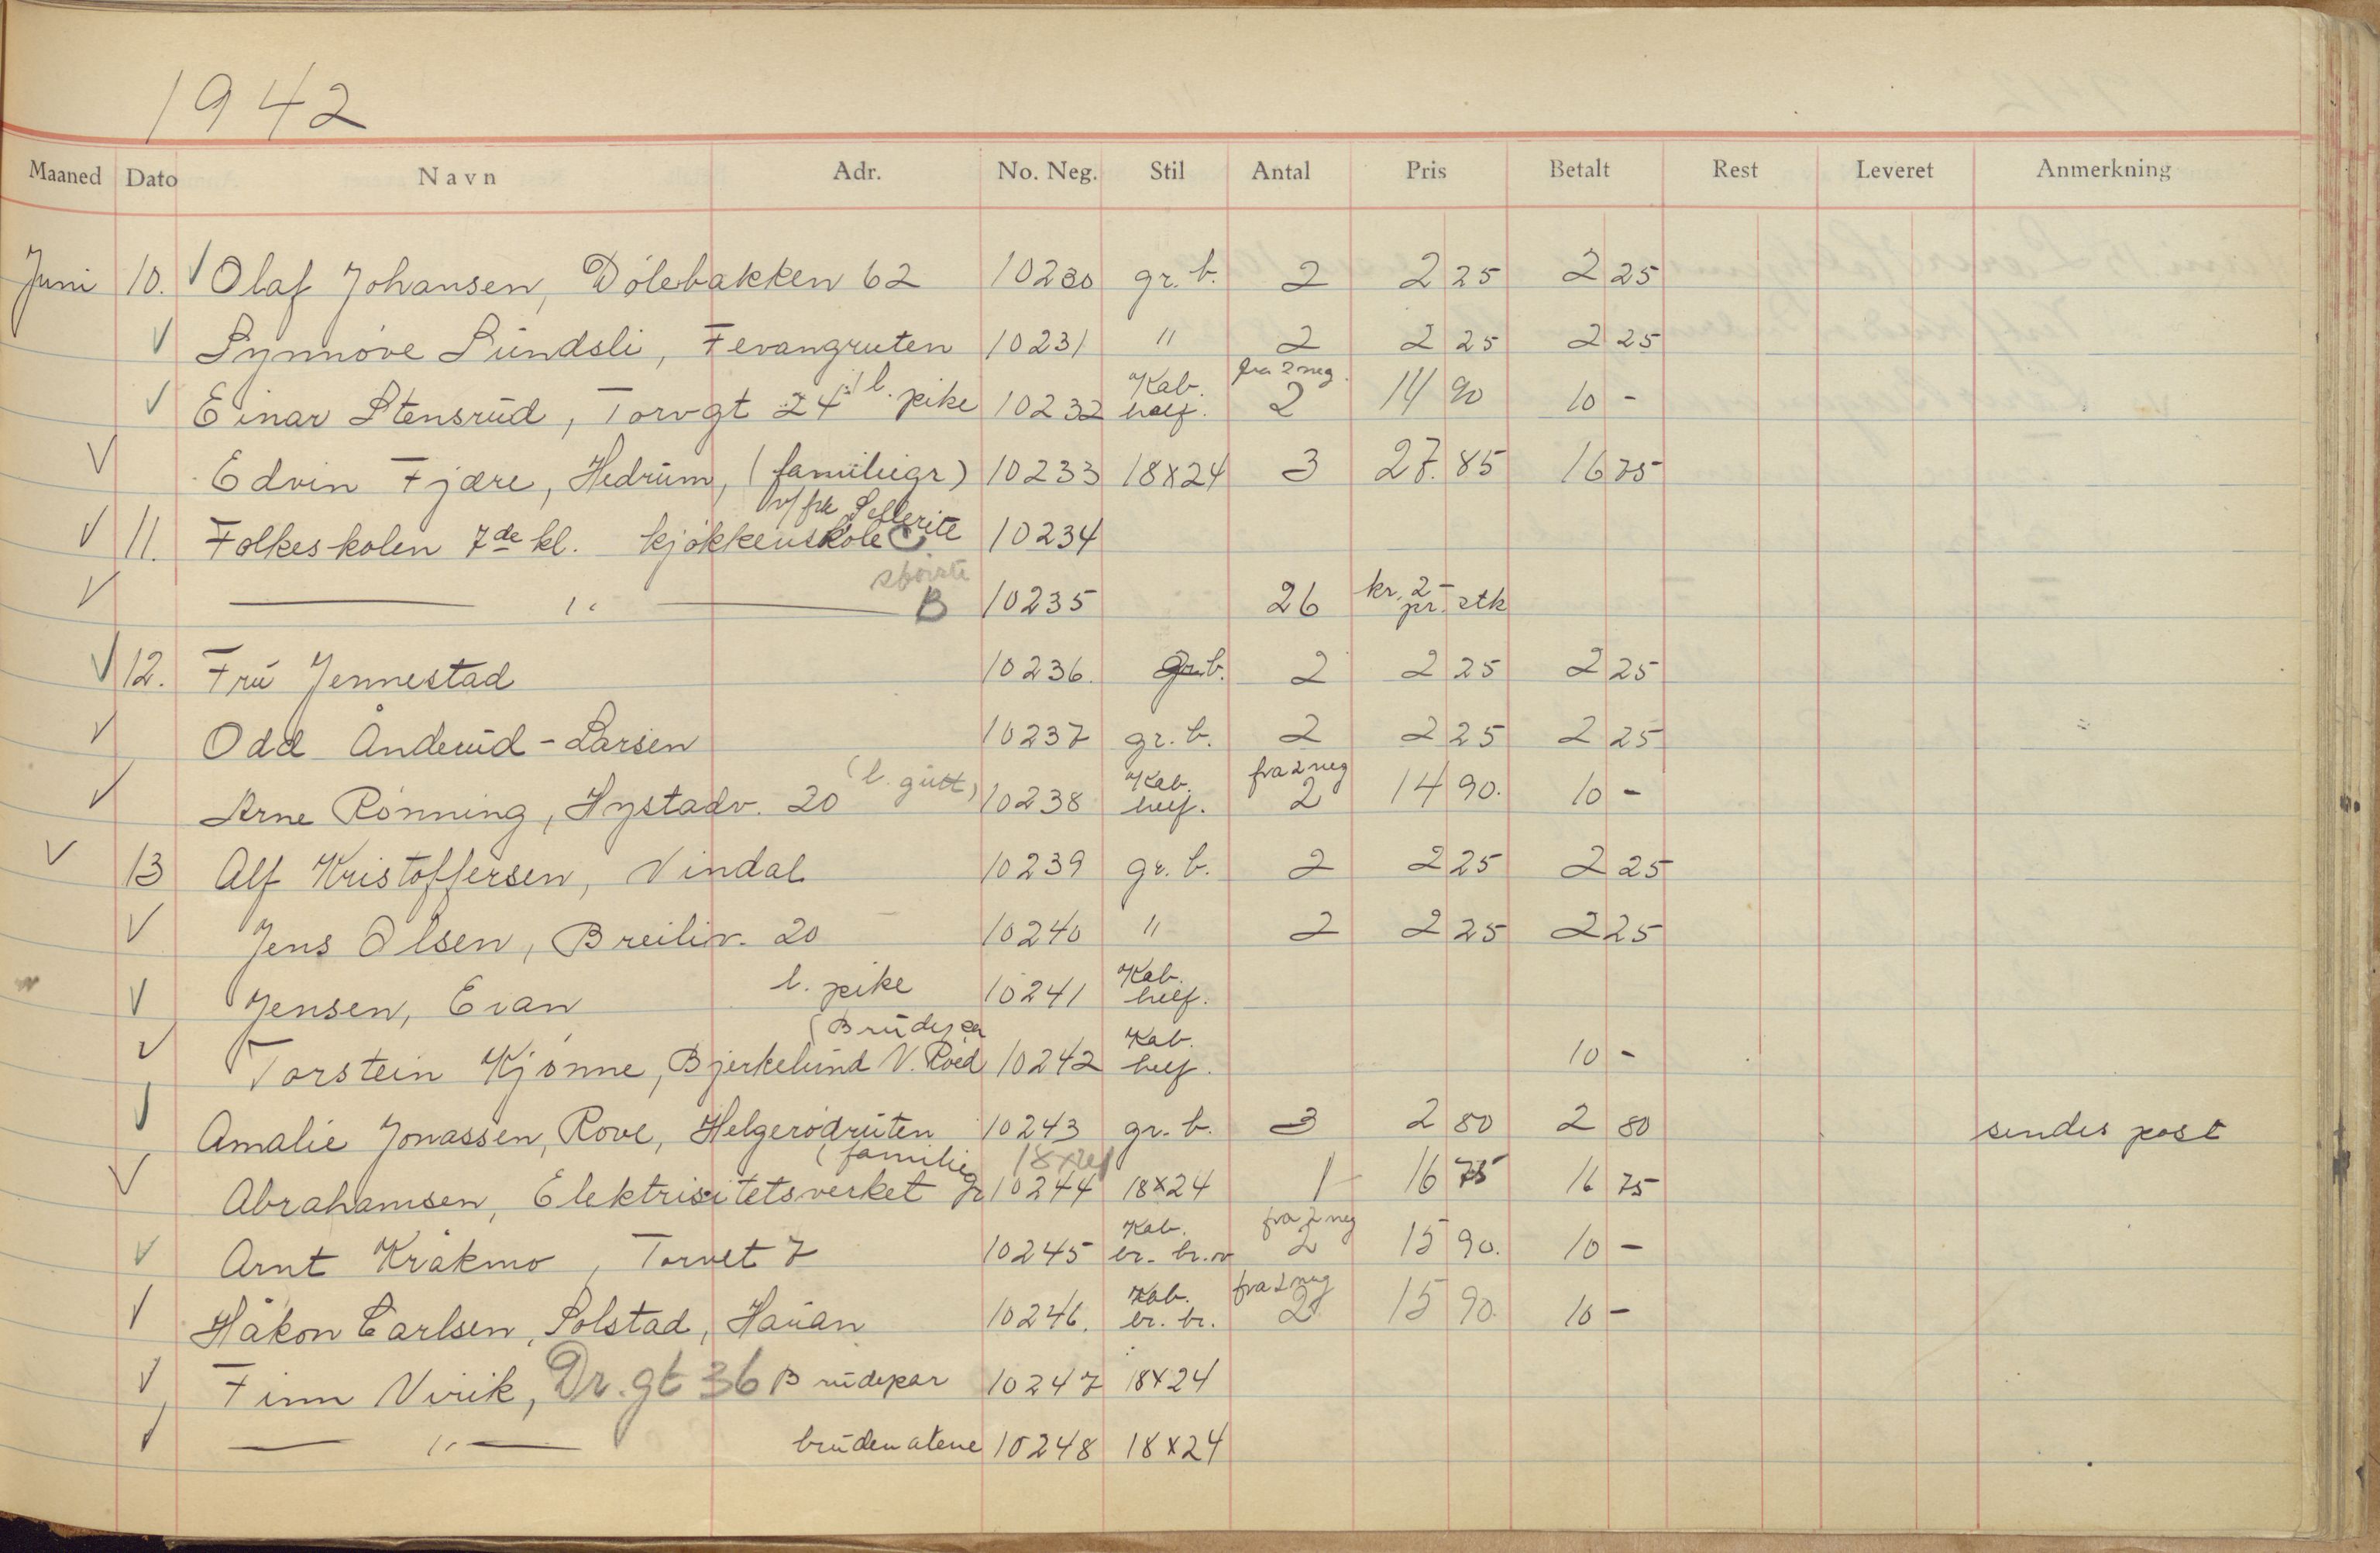 1942
Maaned Dato Navn Adr. No. Neg. Stil Antal Pris Betalt Rest Leveret Anmerkning
Juni 10. Olaf Johansen, Dölebakken 62 10230 gr. b. 2 2 25 2 25
Synnöve Sundsli, Fevangruten 10231 " 2 2 25 2 25
Einar Stensrud, Torvgt 24 l. pike 10232 Kab. helf. fra 2 neg. 2 14 90 10 -
Edvin Fjære, Hedrum, (familiegr) 10233 18x24 3 27.85 16 75
11. Folkeskolen 7de kl. kjökkenskole v/ frk 10234
" B 10235 26 kr. 2- pr. stk
12. Fru Jennestad 10236. gr. b. 2 2 25 2 25
Odd Anderud-Larsen 10237 gr. b. 2 2 25 2 25
Arne Rönning, Hystadv. 20 (l. gutt) 10238 Kab. helf. fra 2 neg 2 14 90. 10 -
13 Alf Kristoffersen, Vindal 10239 gr. b. 2 2 25 2 25
Jens Olsen, Breiliv. 20 10240 " 2 2 25 2 25
Jensen, Evan l. pike 10241 Kab. helf.
Torstein Kjönne, Bjerkelund V. Roëd (Brudepar 10242 Kab. helf. 10 -
Amalie Jonassen, Rove, Helgerödruten 10243 gr. b. 3 2 80 2 80 sendes post
Abrahamsen, Elektrisitetsverket (familiegr 18x24 10244 18x24 1 16 75 16 75
Arnt Kråkmo, Torvet 7 10245 Kab. br. br. v fra 2 neg 2 15 90. 10 -
Håkon Carlsen, Solstad, Hauan 10246. Kab. br. br. fra 2 neg 2 15 90. 10 -
Finn Virik, Dr. gt 36 Brudepar 10247 18x24
" bruden alene 10248 18x24